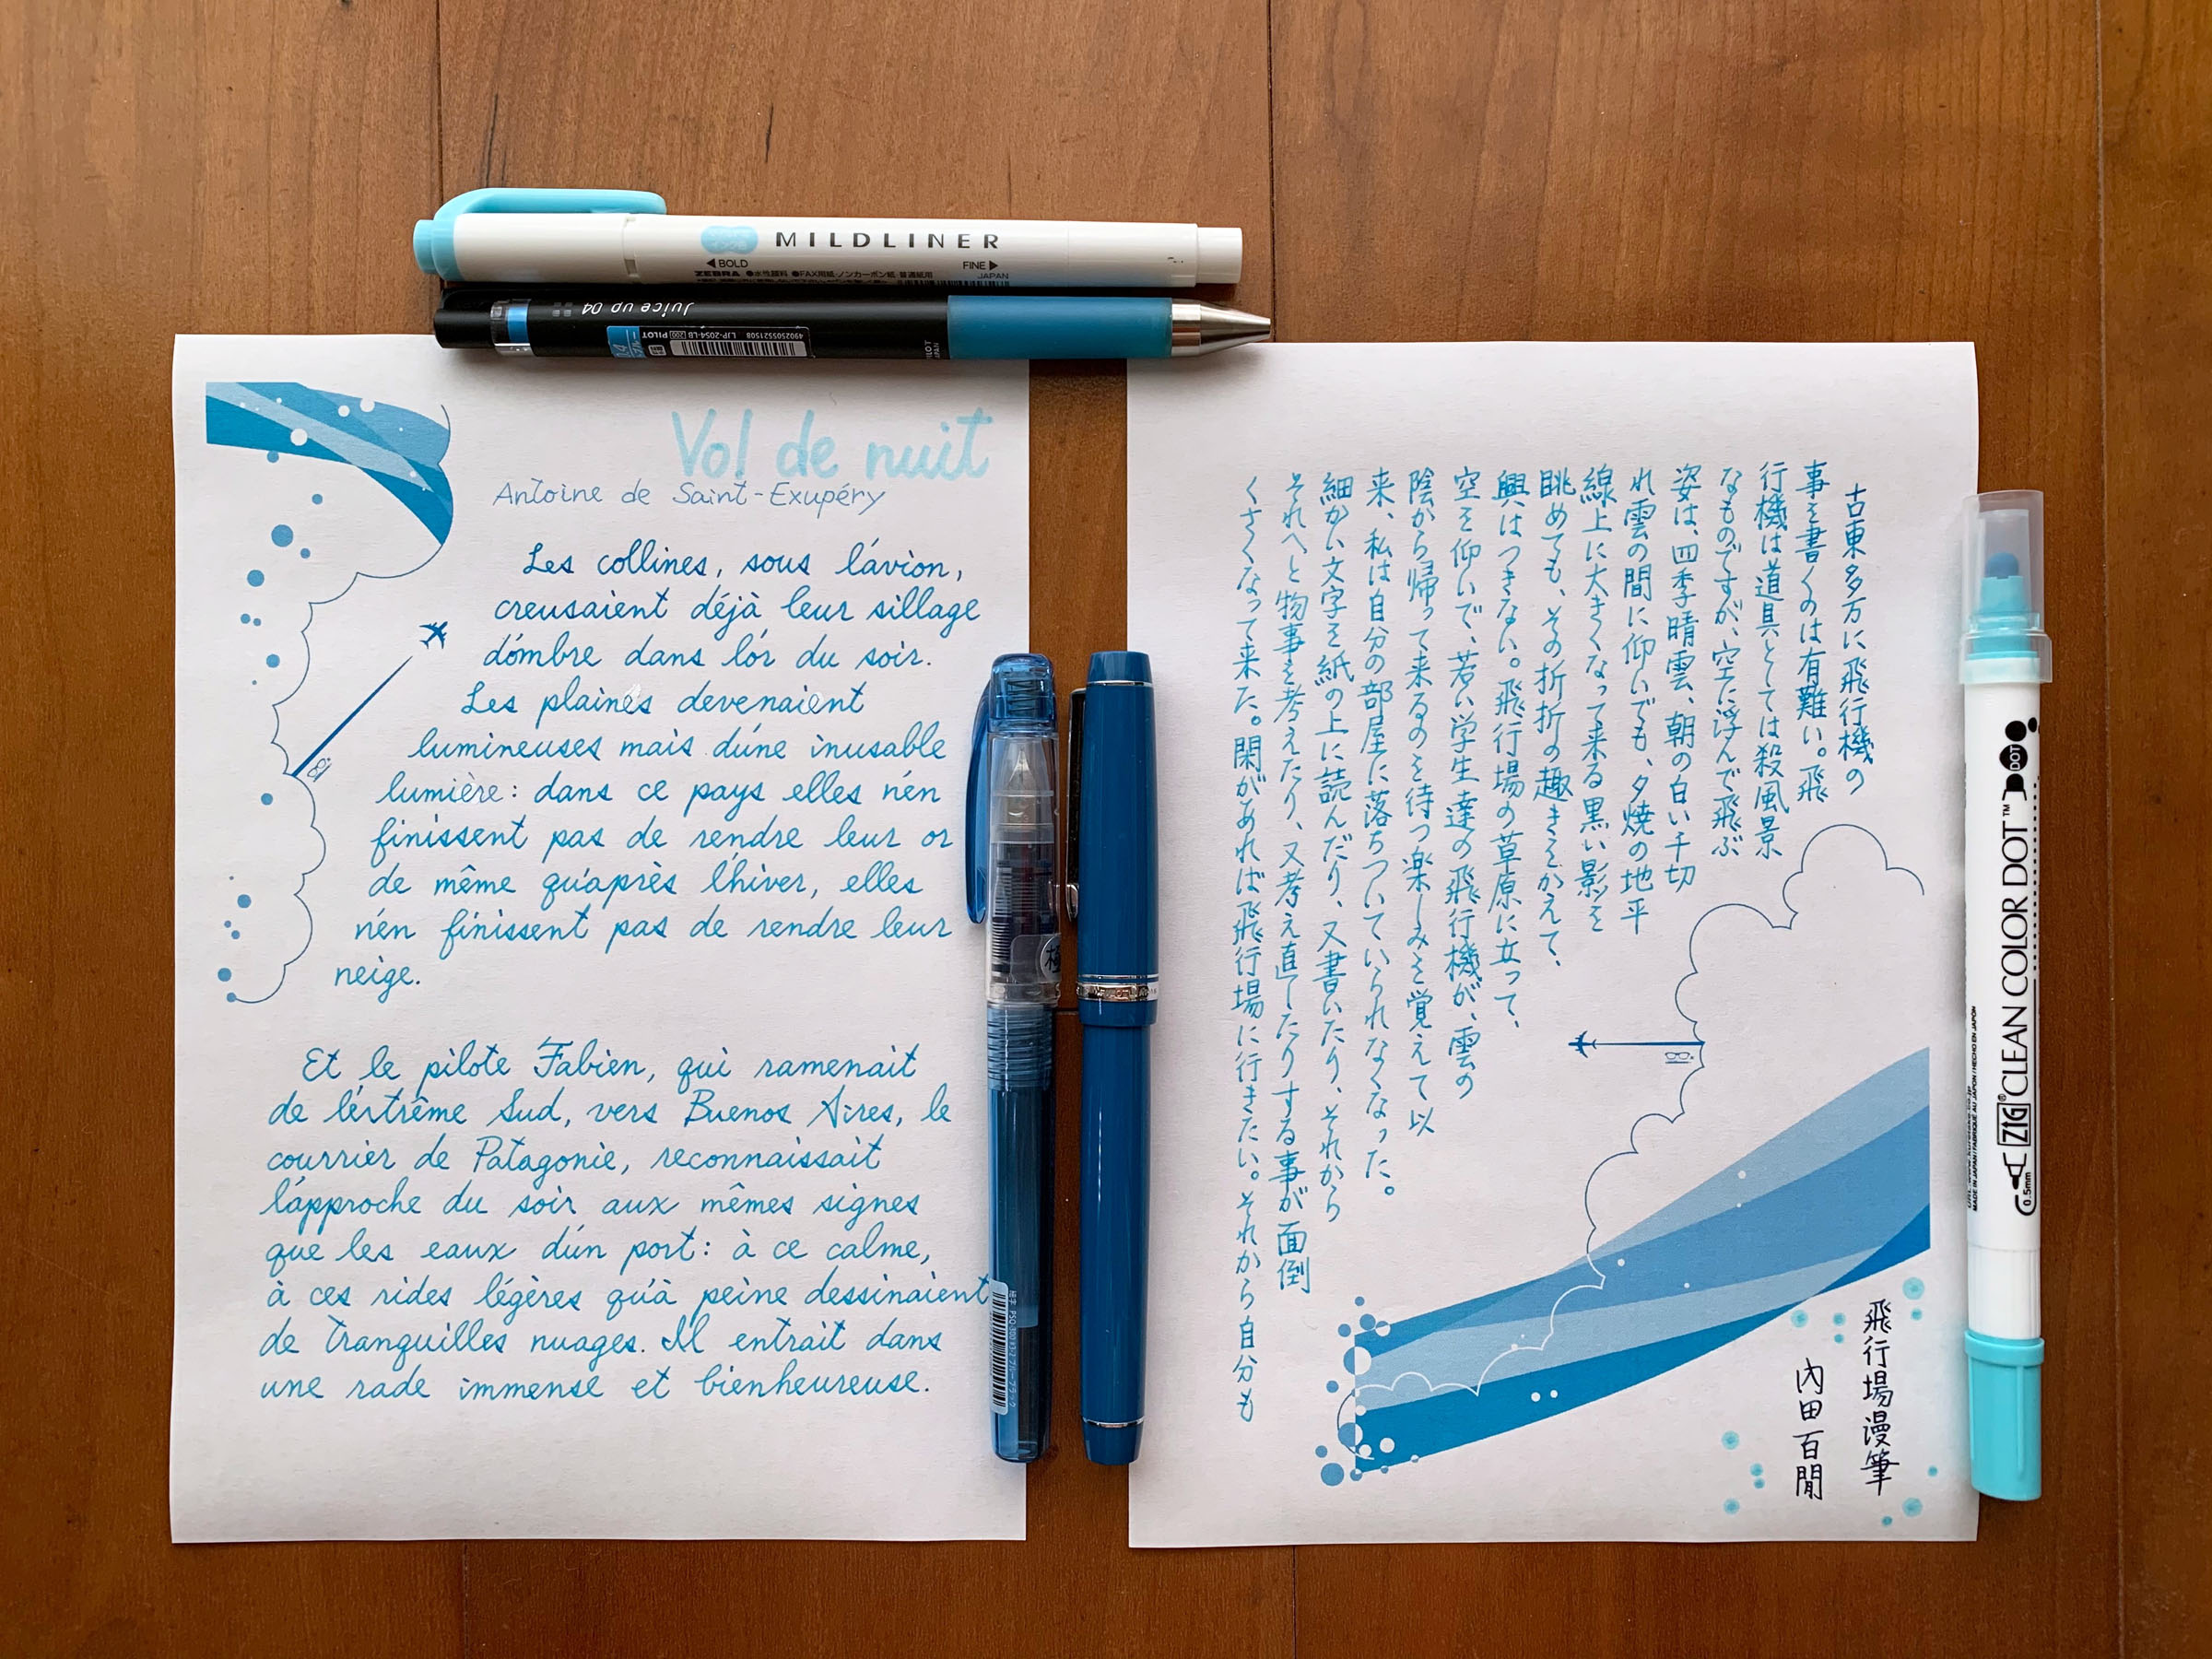 MILDLINER
◀BOLD
FINE▶
ZEBRA ●水性顔料 ●FAX用紙・ノンカーボン紙・普通紙用
JAPAN
Juice up 04
PILOT
LJP-20S4-LB
4902505521508
Vol de nuit
Antoine de Saint-Exupéry
Les collines, sous l'avion,
creusaient déjà leur sillage
d'ombre dans l'or du soir.
Les plaines devenaient
lumineuses mais d'une inusable
lumière: dans ce pays elles n'en
finissent pas de rendre leur or
de même qu'après l'hiver, elles
n'en finissent pas de rendre leur
neige.
Et le pilote Fabien, qui ramenait
de l'extrême Sud, vers Buenos Aires, le
courrier de Patagonie, reconnaissait
l'approche du soir aux mêmes signes
que les eaux d'un port: à ce calme,
à ces rides légères qu'à peine dessinaient
de tranquilles nuages. Il entrait dans
une rade immense et bienheureuse.
古東多万に飛行機の
事を書くのは有難い。飛
行機は道具としては殺風景
なものですが、空に浮んで飛ぶ
姿は、四季晴雲、朝の白い千切
れ雲の間に仰いでも、夕焼の地平
線上に大きくなって来る黒い影を
眺めても、その折折の趣きをかえて、
興はつきない。飛行場の草原に立って、
空を仰いで、若い学生達の飛行機が、雲の
陰から帰って来るのを待つ楽しみを覚えて以
来、私は自分の部屋に落ちついていられなくなった。
細かい文字を紙の上に読んだり、又書いたり、それから
それへと物事を考えたり、又考え直したりする事が面倒
くさくなって来た。閑があれば飛行場に行きたい。それから自分も
飛行場漫筆
内田百閒
DOT
ZIG® CLEAN COLOR DOT™
0.5mm
MADE IN JAPAN / FABRIQUÉ AU JAPON / HECHO EN JAPÓN